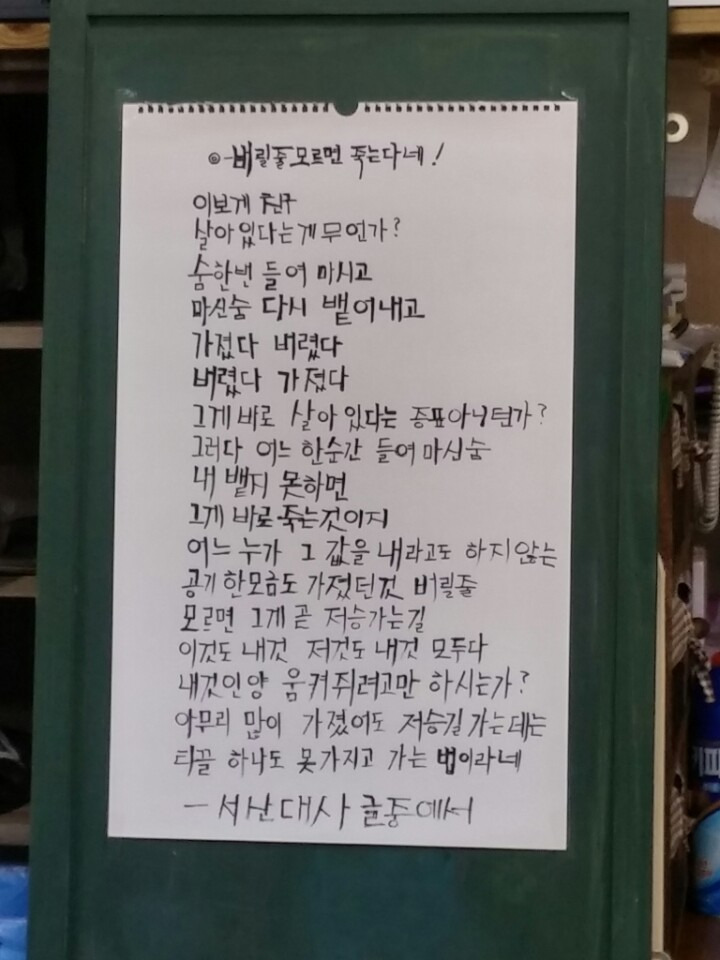 ◎-버릴줄모르면 죽는다네!
이보게 친구
살아있다는게 무언가?
숨한번 들여 마시고
마신숨 다시 뱉어내고
가졌다 버렸다
버렸다 가졌다
그게 바로 살아있다는 증표아니턴가?
그러다 어느 한순간 들여마신숨
내 뱉지 못하면
그게 바로 죽는것이지
어느 누가 그 값을 내라고도 하지않는
공기 한모금도 가졌던것 버릴줄
모르면 그게 곧 저승가는길
이것도 내것 저것도 내것 모두다
내것인양 움켜쥐려고만 하시는가?
아무리 많이 가졌어도 저승길 가는데는
티끌 하나도 못가지고 가는 법이라네
- 서산대사 글중에서